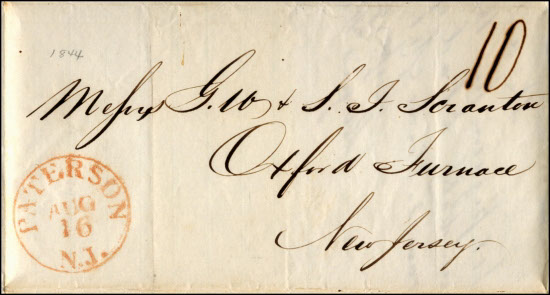 1844
10
Messrs G. W. & S. T. Scranton
Oxford Furnace
New Jersey.
PATERSON
AUG
16
N.J.